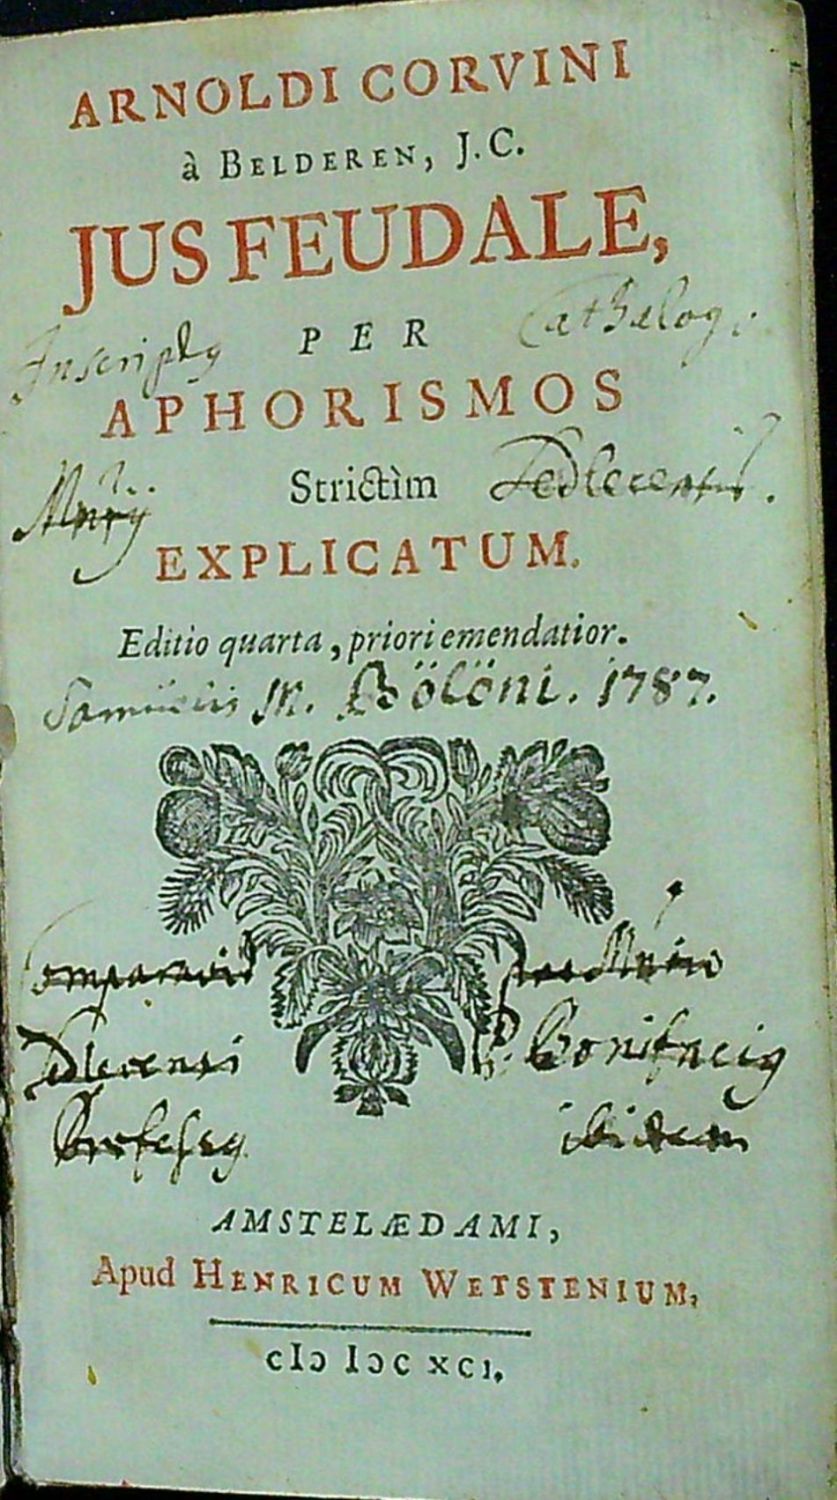 ARNOLDI CORVINI
à BELDEREN, J.C.
JUS FEUDALE,
PER
Inscriptq Cathelog.
APHORISMOS
Strictìm
EXPLICATUM.
Editio quarta, priori emendatior.
Samüelis M. Bölöni. 1787.
P. Bonifacig
ibidem
AMSTELÆDAMI,
Apud HENRICUM WETSTENIUM,
cIↄ Iↄc xcI.